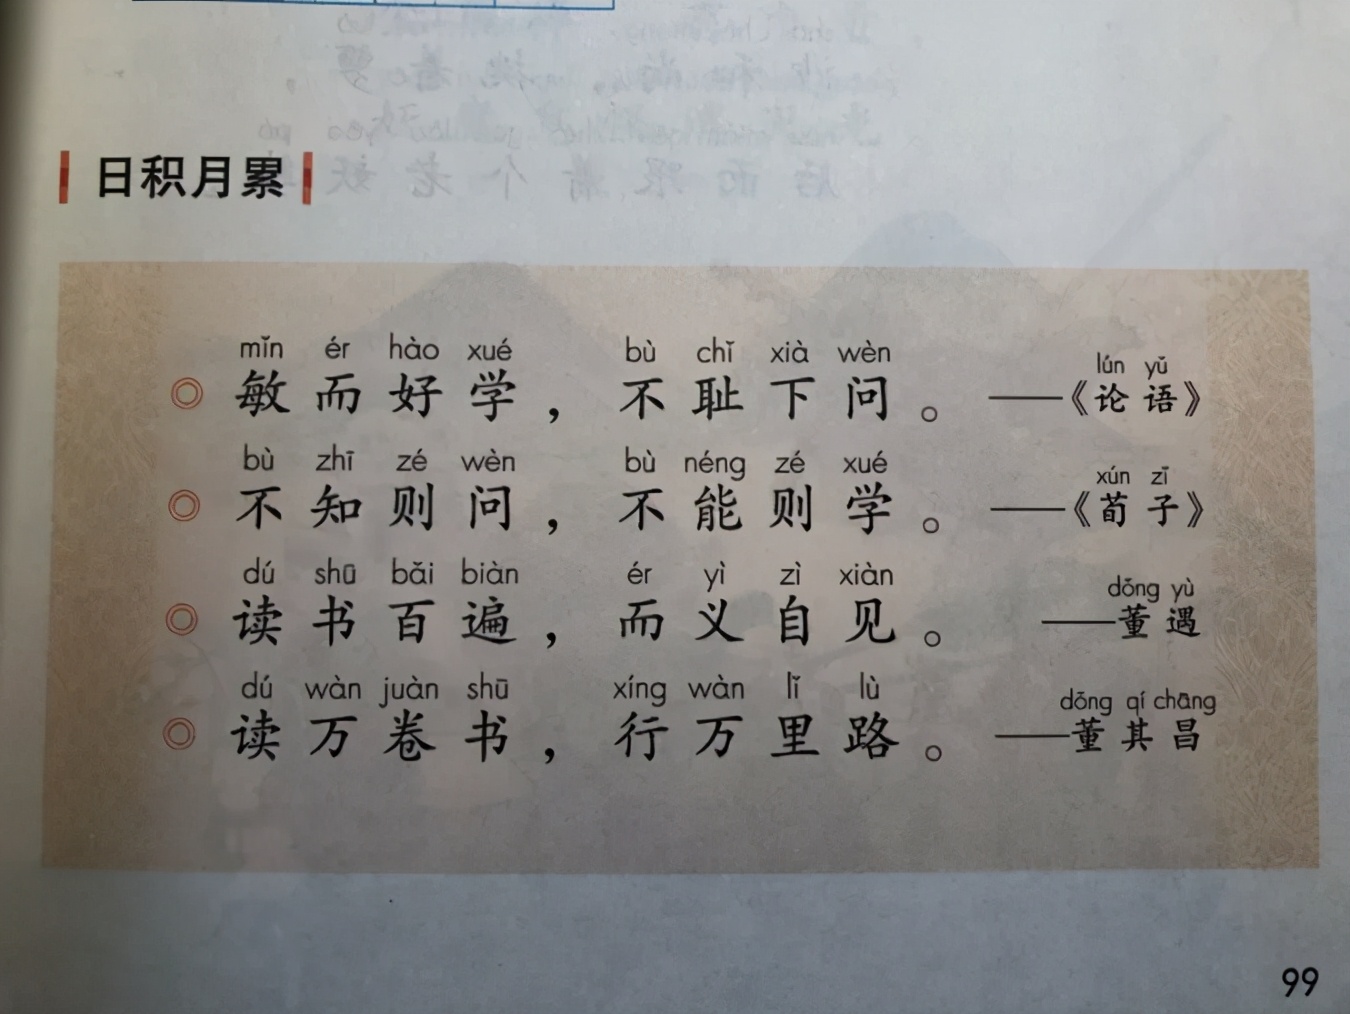 日积月累
mǐn ér hào xué bù chǐ xià wèn lún yǔ
◎ 敏而好学，不耻下问。——《论语》
bù zhī zé wèn bù néng zé xué xún zǐ
◎ 不知则问，不能则学。——《荀子》
dú shū bǎi biàn ér yì zì xiàn dǒng yù
◎ 读书百遍，而义自见。——董遇
dú wàn juàn shū xíng wàn lǐ lù dǒng qí chāng
◎ 读万卷书，行万里路。——董其昌
99